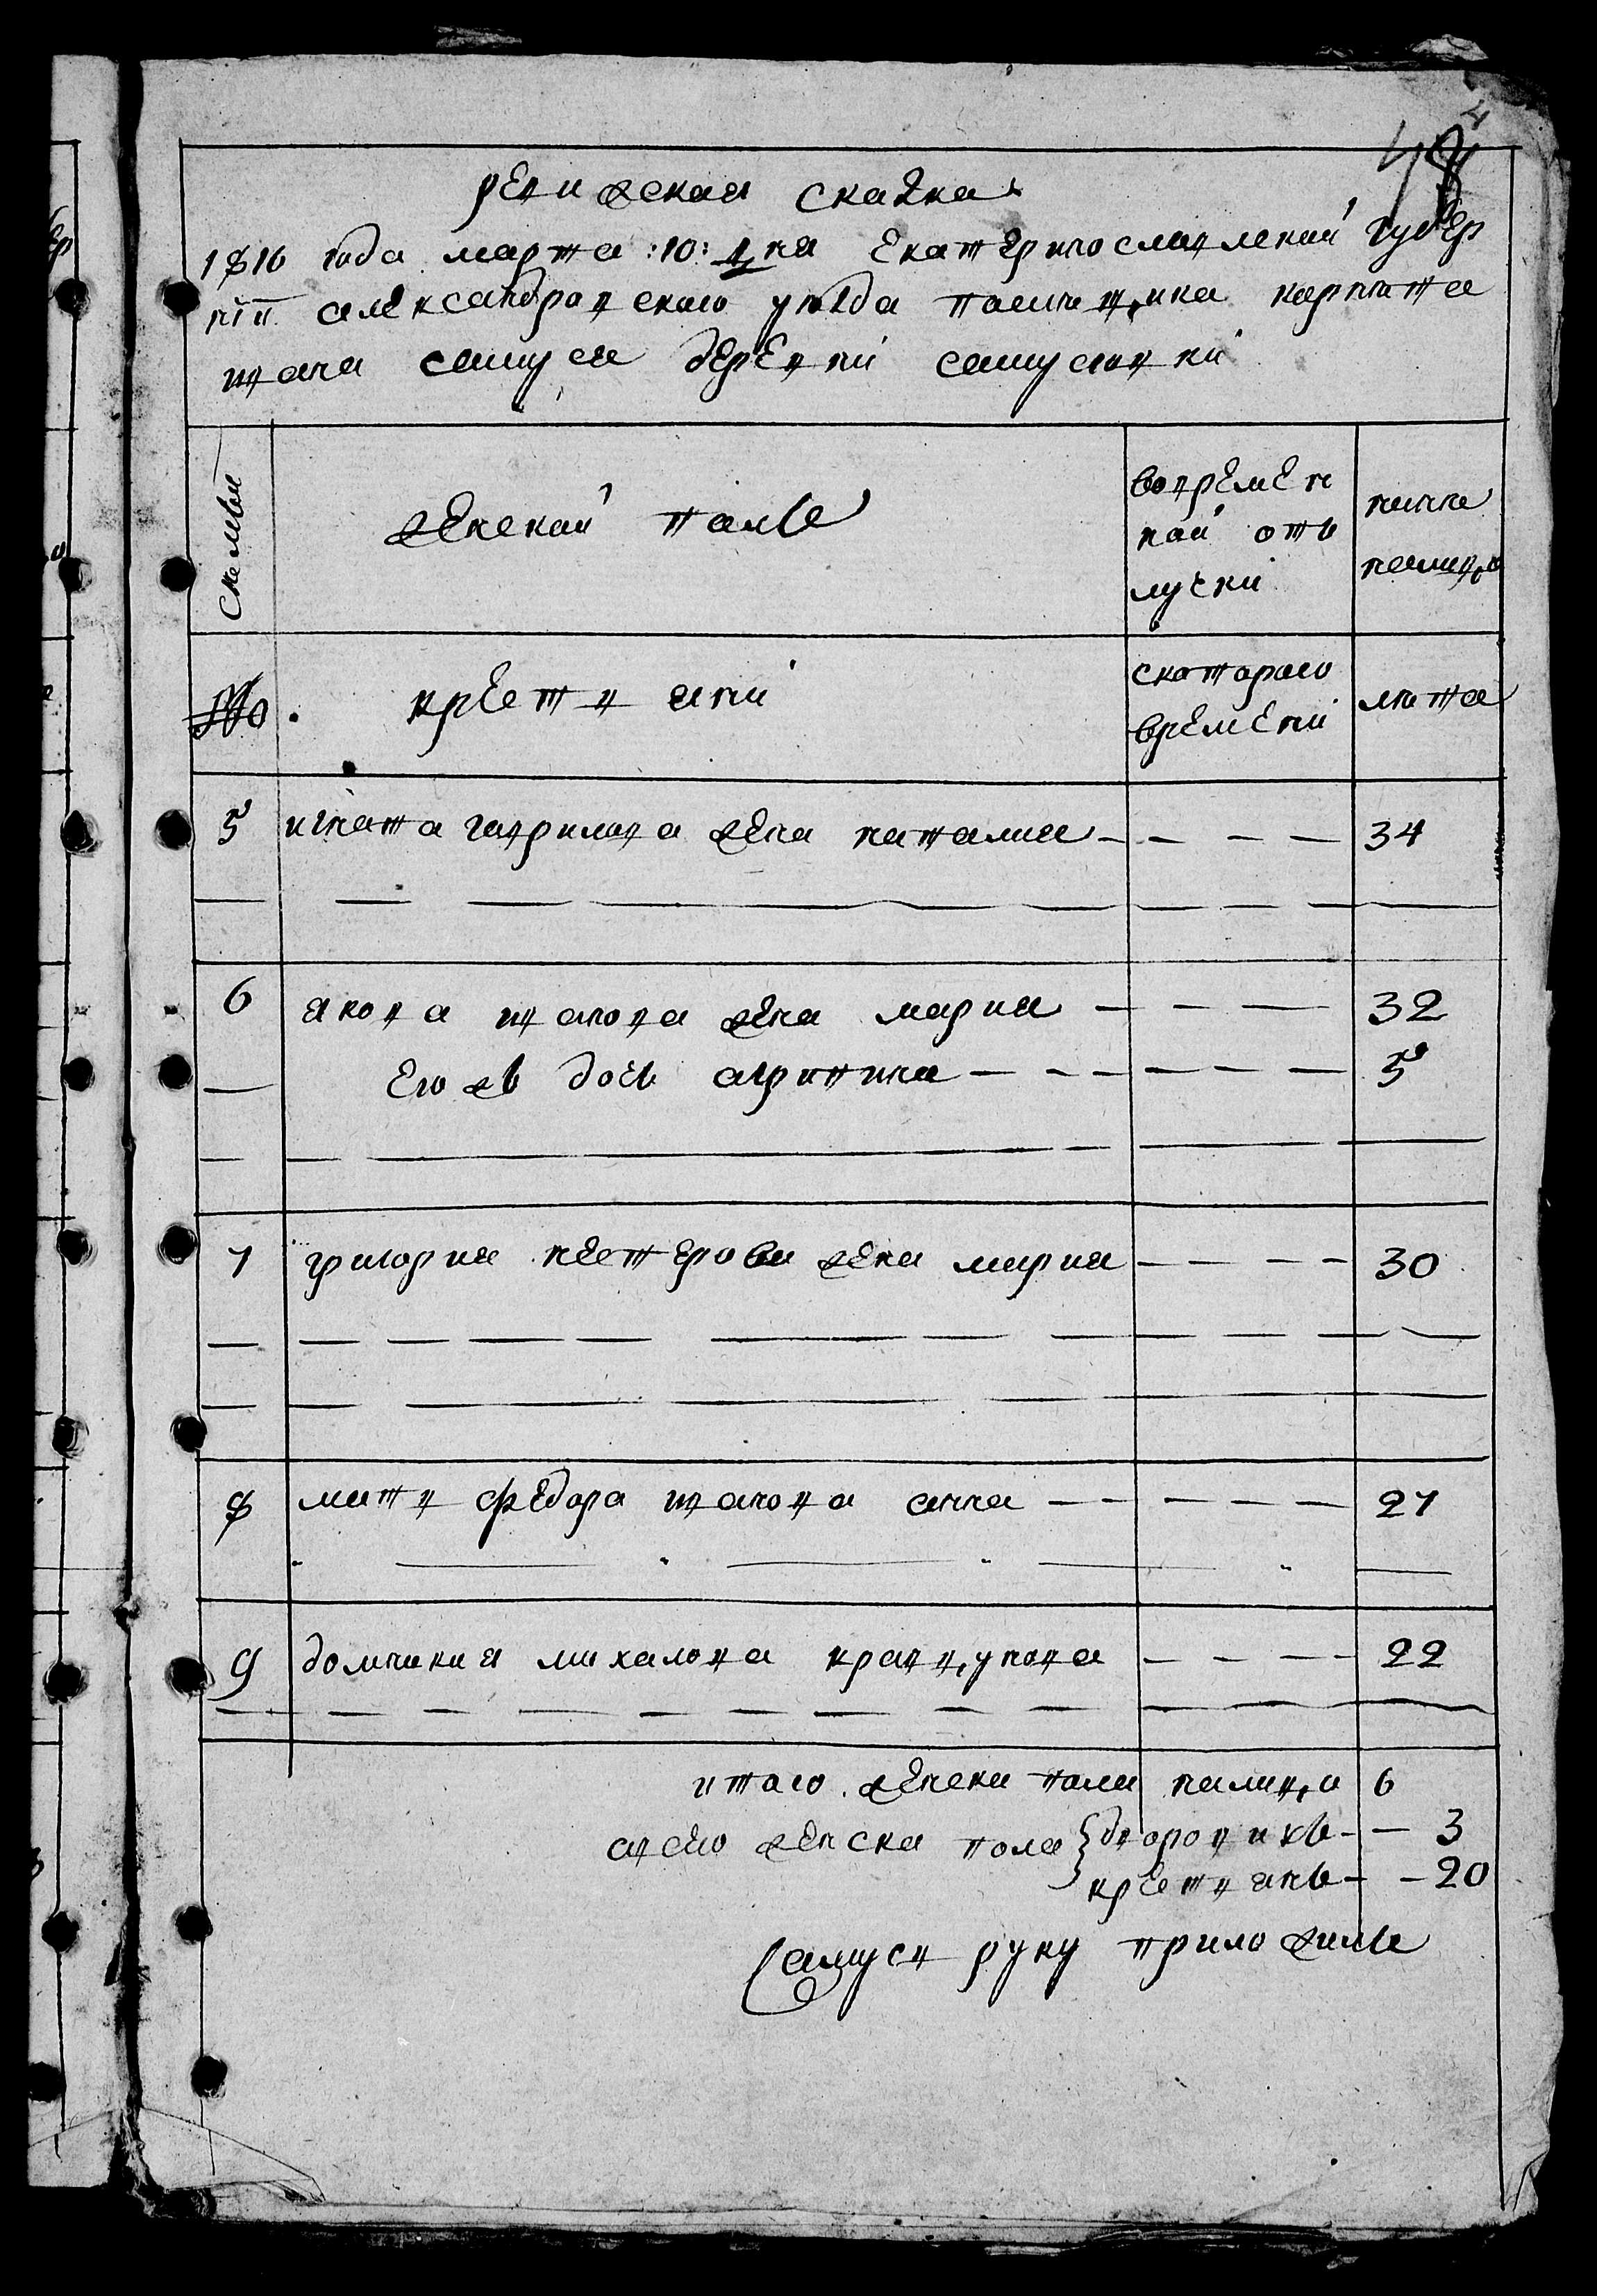 48
ревижская сказка
1816 года марта :10: дня Екатеринославской губер
нїи александровского уезда помещика корнета
ивана самуся деревни самусовки
семьи
женской полъ
вовремен
ной отъ
лучки
ныне
налицо
№
крестьяни
скоторого
времени
лета
5 игната гаврилова жена наталия 34
6 якова иванова жена мария 32
Его жъ дочь агрипина 5
7 григория нестерова жена мария 30
8 мать федора иванова анна 27
9 домникия михалова кравцунова 22
итого женска пола налицо 6
авсего женска пола дворовихъ 3
крестьянъ 20
Самусь руку приложилъ